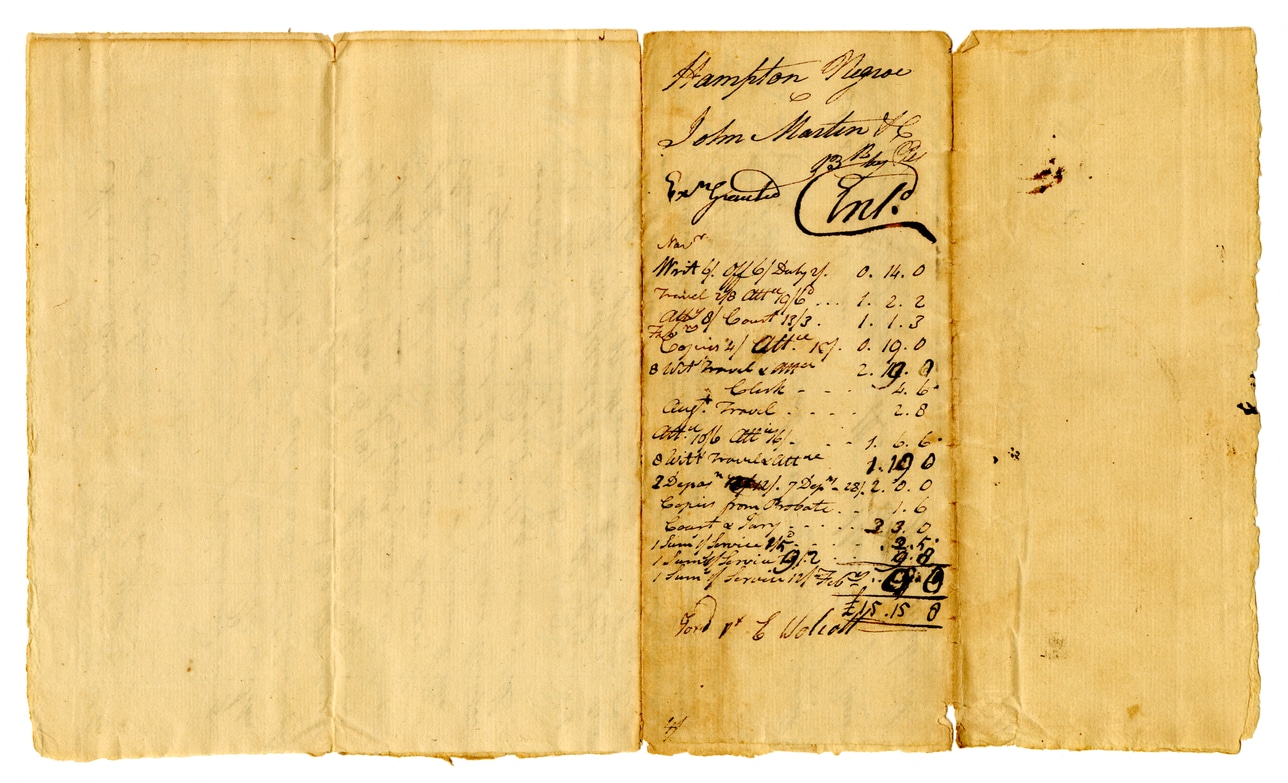 Hampton Negroe
C
John Martin & C
by
Exn Granted Entd
Novr
Writ 6/. Off 6/ Duty 2/. 0. 14. 0
Travel 2/8 Attce 19/6d ... 1. 2. 2
Atty 8/ Court 13/3. 1. 1. 3
Febry
Copies 4/ Attce 15/. 0. 19. 0
8 Witt Travel & Attce 2. 19. 0
Clerk - - - 4. 6
Augt. Travel - - - - 2. 8
Attce 10/6 Attce 16/ - - - 1. 6. 6
8 Witt Travel & Attce 1. 19 0
2 Deposn 12/. 7 Depns 28/. 2. 0. 0
Copies from Probate - - 1. 6
Court & Jury - - - - 3. 0
1 Sums & Service 2/5d - - - . 2. 5
1 Sums & Service 9/2 - - 9. 8
1 Sums & Service 12/ Feby - -
£15. 15 8
pr E Wolcott